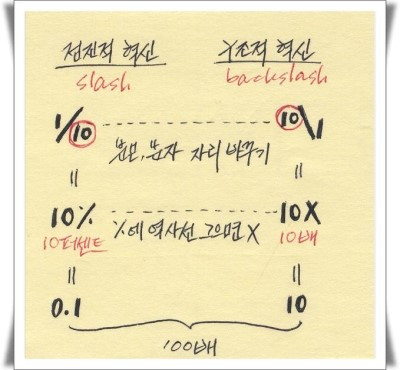 점진적 혁신 혁신
slash backslash
1/10 10\1
분모, 분자 자리 바꾸기
= =
10% 10X
10퍼센트 %에 역사선 그으면 X 10배
= =
0.1 10
100배